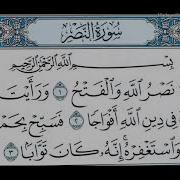 سُورَةُ النَّصْرِ
بِسْمِ اللَّهِ الرَّحْمَٰنِ الرَّحِيمِ
نَصْرُ اللَّهِ وَالْفَتْحُ ١ وَرَأَيْتَ
فِي دِينِ اللَّهِ أَفْوَاجًا ٢ فَسَبِّحْ بِحَمْ
وَاسْتَغْفِرْهُ إِنَّهُ كَانَ تَوَّابًا ٣